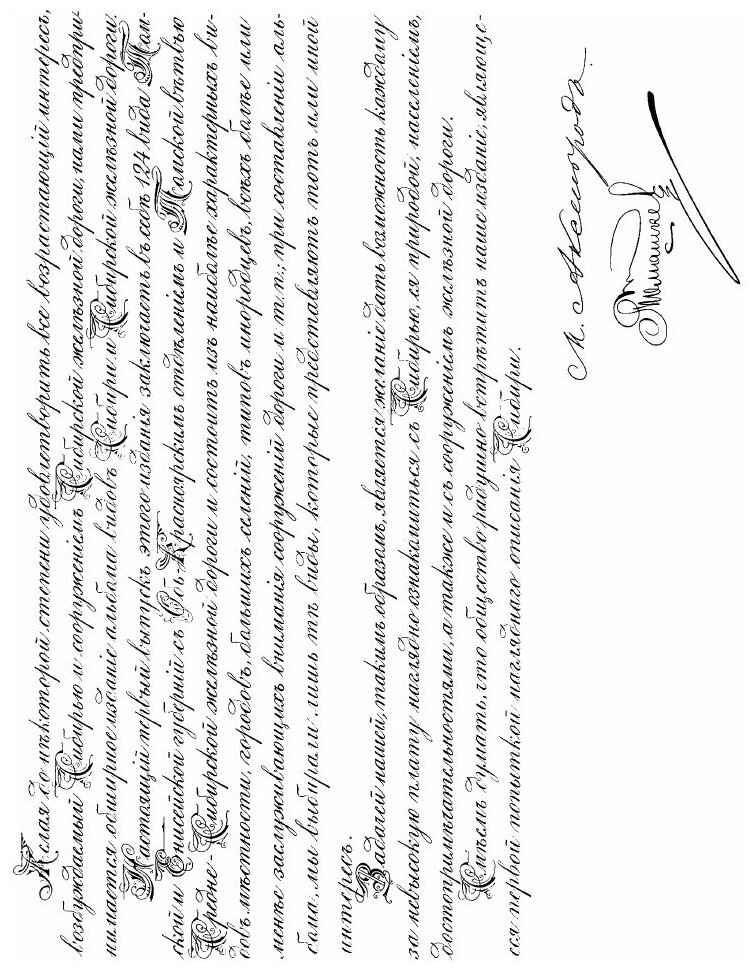 Желая до нѣкоторой степени удовлетворить все возрастающій интересъ,
возбуждаемый Сибирью и сооруженіемъ Сибирской желѣзной дороги, нами предпри-
нимается обширное изданіе альбома видовъ Сибири и Сибирской желѣзной дороги.
Настоящій первый выпускъ этого изданія заключаетъ въ себѣ 124 вида Том-
ской и Енисейской губерній съ Обь-Красноярскимъ отдѣленіемъ и Томской вѣтвью
Средне-Сибирской желѣзной дороги и состоитъ изъ наиболѣе характерныхъ ви-
довъ мѣстности, городовъ, большихъ селеній, типовъ инородцевъ, всѣхъ болѣе или
менѣе заслуживающихъ вниманія сооруженій дороги и т.п.; при составленіи аль-
бома, мы выбирали лишь тѣ виды, которые представляютъ тотъ или иной
интересъ.
Задачей нашей, такимъ образомъ, является желаніе дать возможность каждому
за невысокую плату наглядно ознакомиться съ Сибирью, ея природой, населеніемъ,
достопримѣчательностями, а также и съ сооруженіемъ желѣзной дороги.
Смѣемъ думать, что общество радушно встрѣтитъ наше изданіе, являюще-
еся первой попыткой нагляднаго описанія Сибири.
М. Аксельродъ.